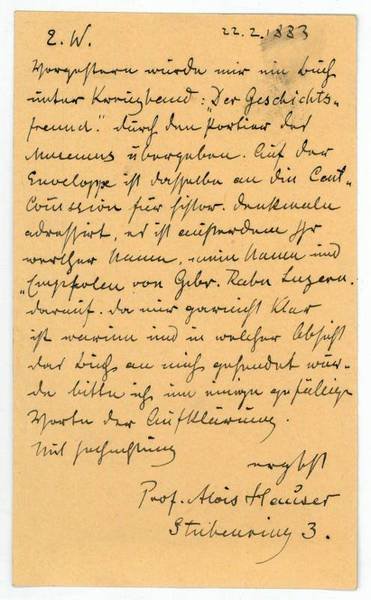 E. W. 22.2.1883
Vorgestern wurde mir ein Buch
unter Kreuzband: "Der Geschichts-
freund." durch den Portier des
Museums übergeben. Auf der
Enveloppe ist dasselbe an die Cent-
Comission für histor. Denkmale
adressirt, es ist außerdem Ihr
werther Name, mein Name und
"Empfolen von Gebr. Raber Luzern."
darauf. Da mir garnicht klar
ist warum und in welcher Absicht
das Buch an mich gesendet wur-
de bitte ich um einige gefällige
Worte der Aufklärung.
Mit Hochachtung
ergbst
Prof. Alois Hauser
Stubenring 3.